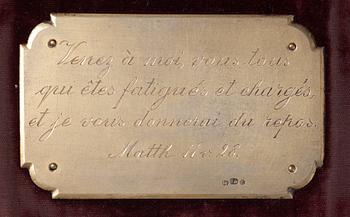 Venez à moi, vous tous
qui êtes fatigués et chargés,
et je vous donnerai du repos.
Matth 11 v 28.